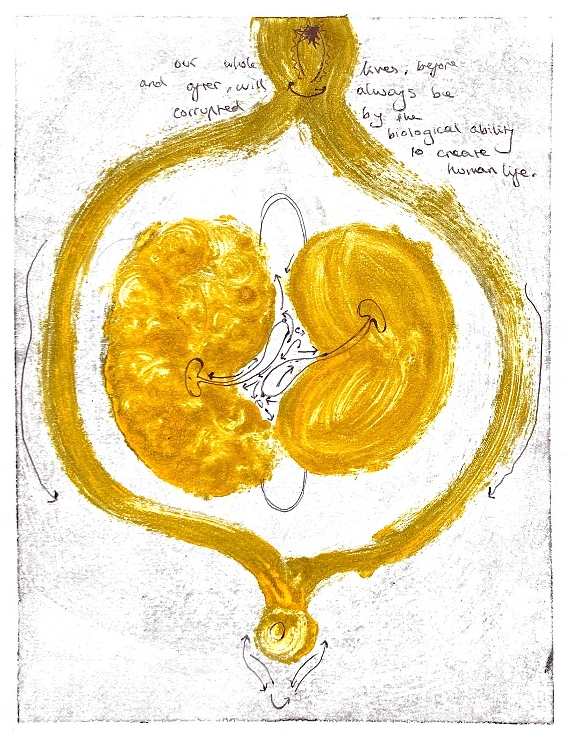 our whole lives, before
and after, will always be
corrupted by the
biological ability
to create
human life.